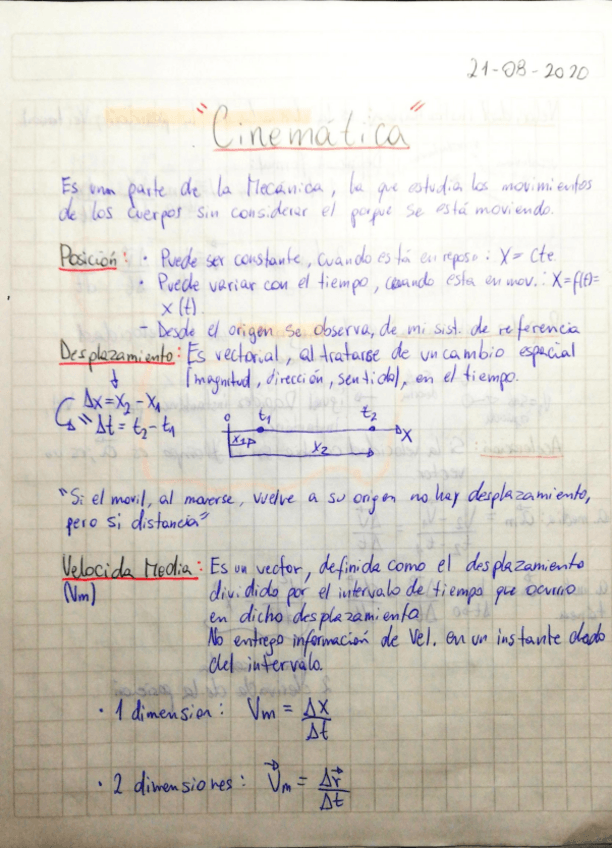 21-08-2020
"Cinemática"
Es una parte de la Mecánica, la que estudia los movimientos
de los cuerpos sin considerar el porque se está moviendo.
Posición: · Puede ser constante, cuando está en reposo: X = Cte
· Puede variar con el tiempo, cuando esta en mov.: X=f(t)=
x(t)
- Desde el origen se observa, de mi sist. de referencia
Desplazamiento: Es vectorial, al tratarse de un cambio espacial
[magnitud, dirección, sentido], en el tiempo.
↓
Δx = x₂ - x₁
Δt = t₂ - t₁
0 t₁ t₂
x₁ X
x₂
"Si el movil, al moverse, vuelve a su origen no hay desplazamiento,
pero si distancia"
Velocida Media: Es un vector, definida como el desplazamiento
(Vm) dividido por el intervalo de tiempo que ocurrio
en dicho desplazamiento
No entrega información de Vel. en un instante dado
del intervalo.
· 1 dimension: Vm = Δx/Δt
· 2 dimensiones: V⃗m = Δr⃗/Δt